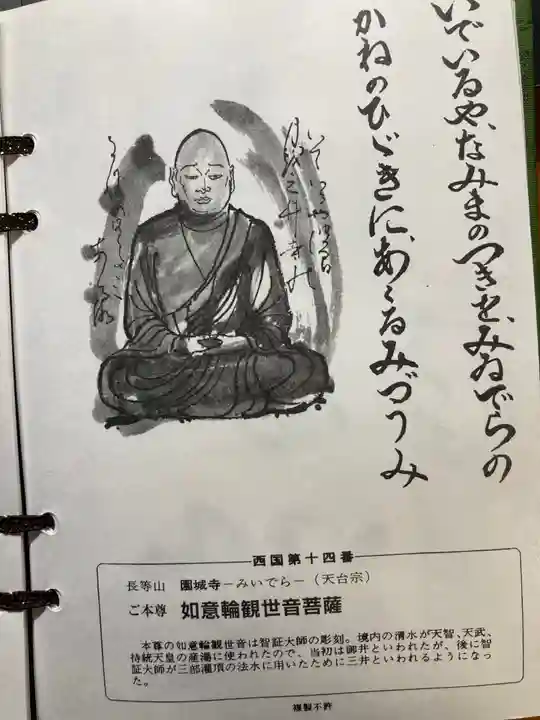 いでいるや、なみまのつきを、みゐでらの
かねのひゞきに、あくるみづうみ
西国第十四番
長等山 園城寺－みいでら－（天台宗）
ご本尊 如意輪観世音菩薩
本尊の如意輪観世音は智証大師の彫刻。境内の清水が天智、天武、
持統天皇の産湯に使われたので、当初は御井といわれたが、後に智
証大師が三部灌頂の法水に用いたために三井といわれるようになっ
た。
複製不許